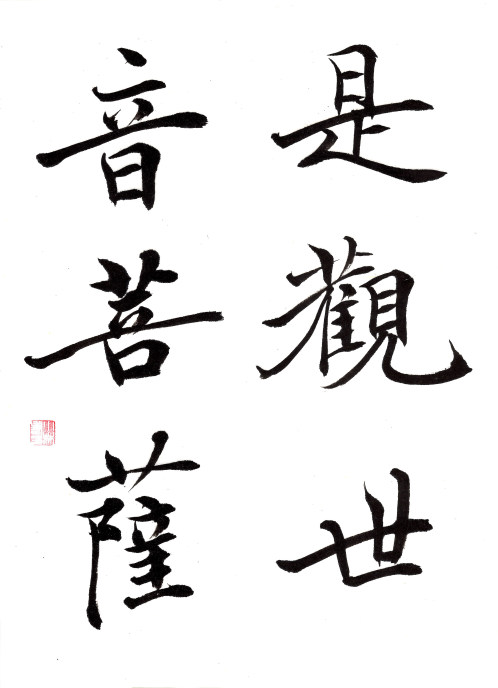 是觀世
音菩薩